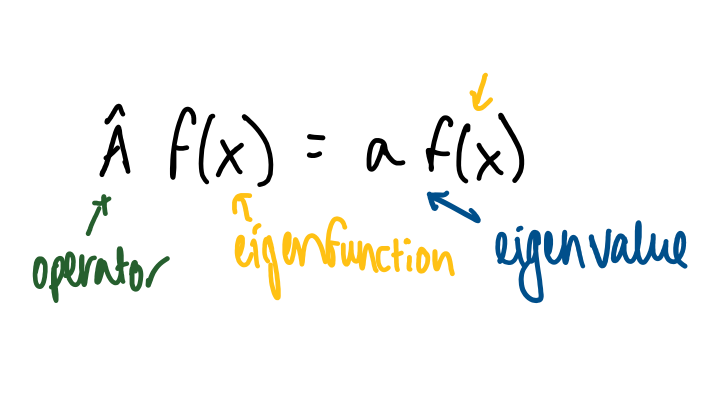 Â f(x) = a f(x)
operator
eigenfunction
eigenvalue